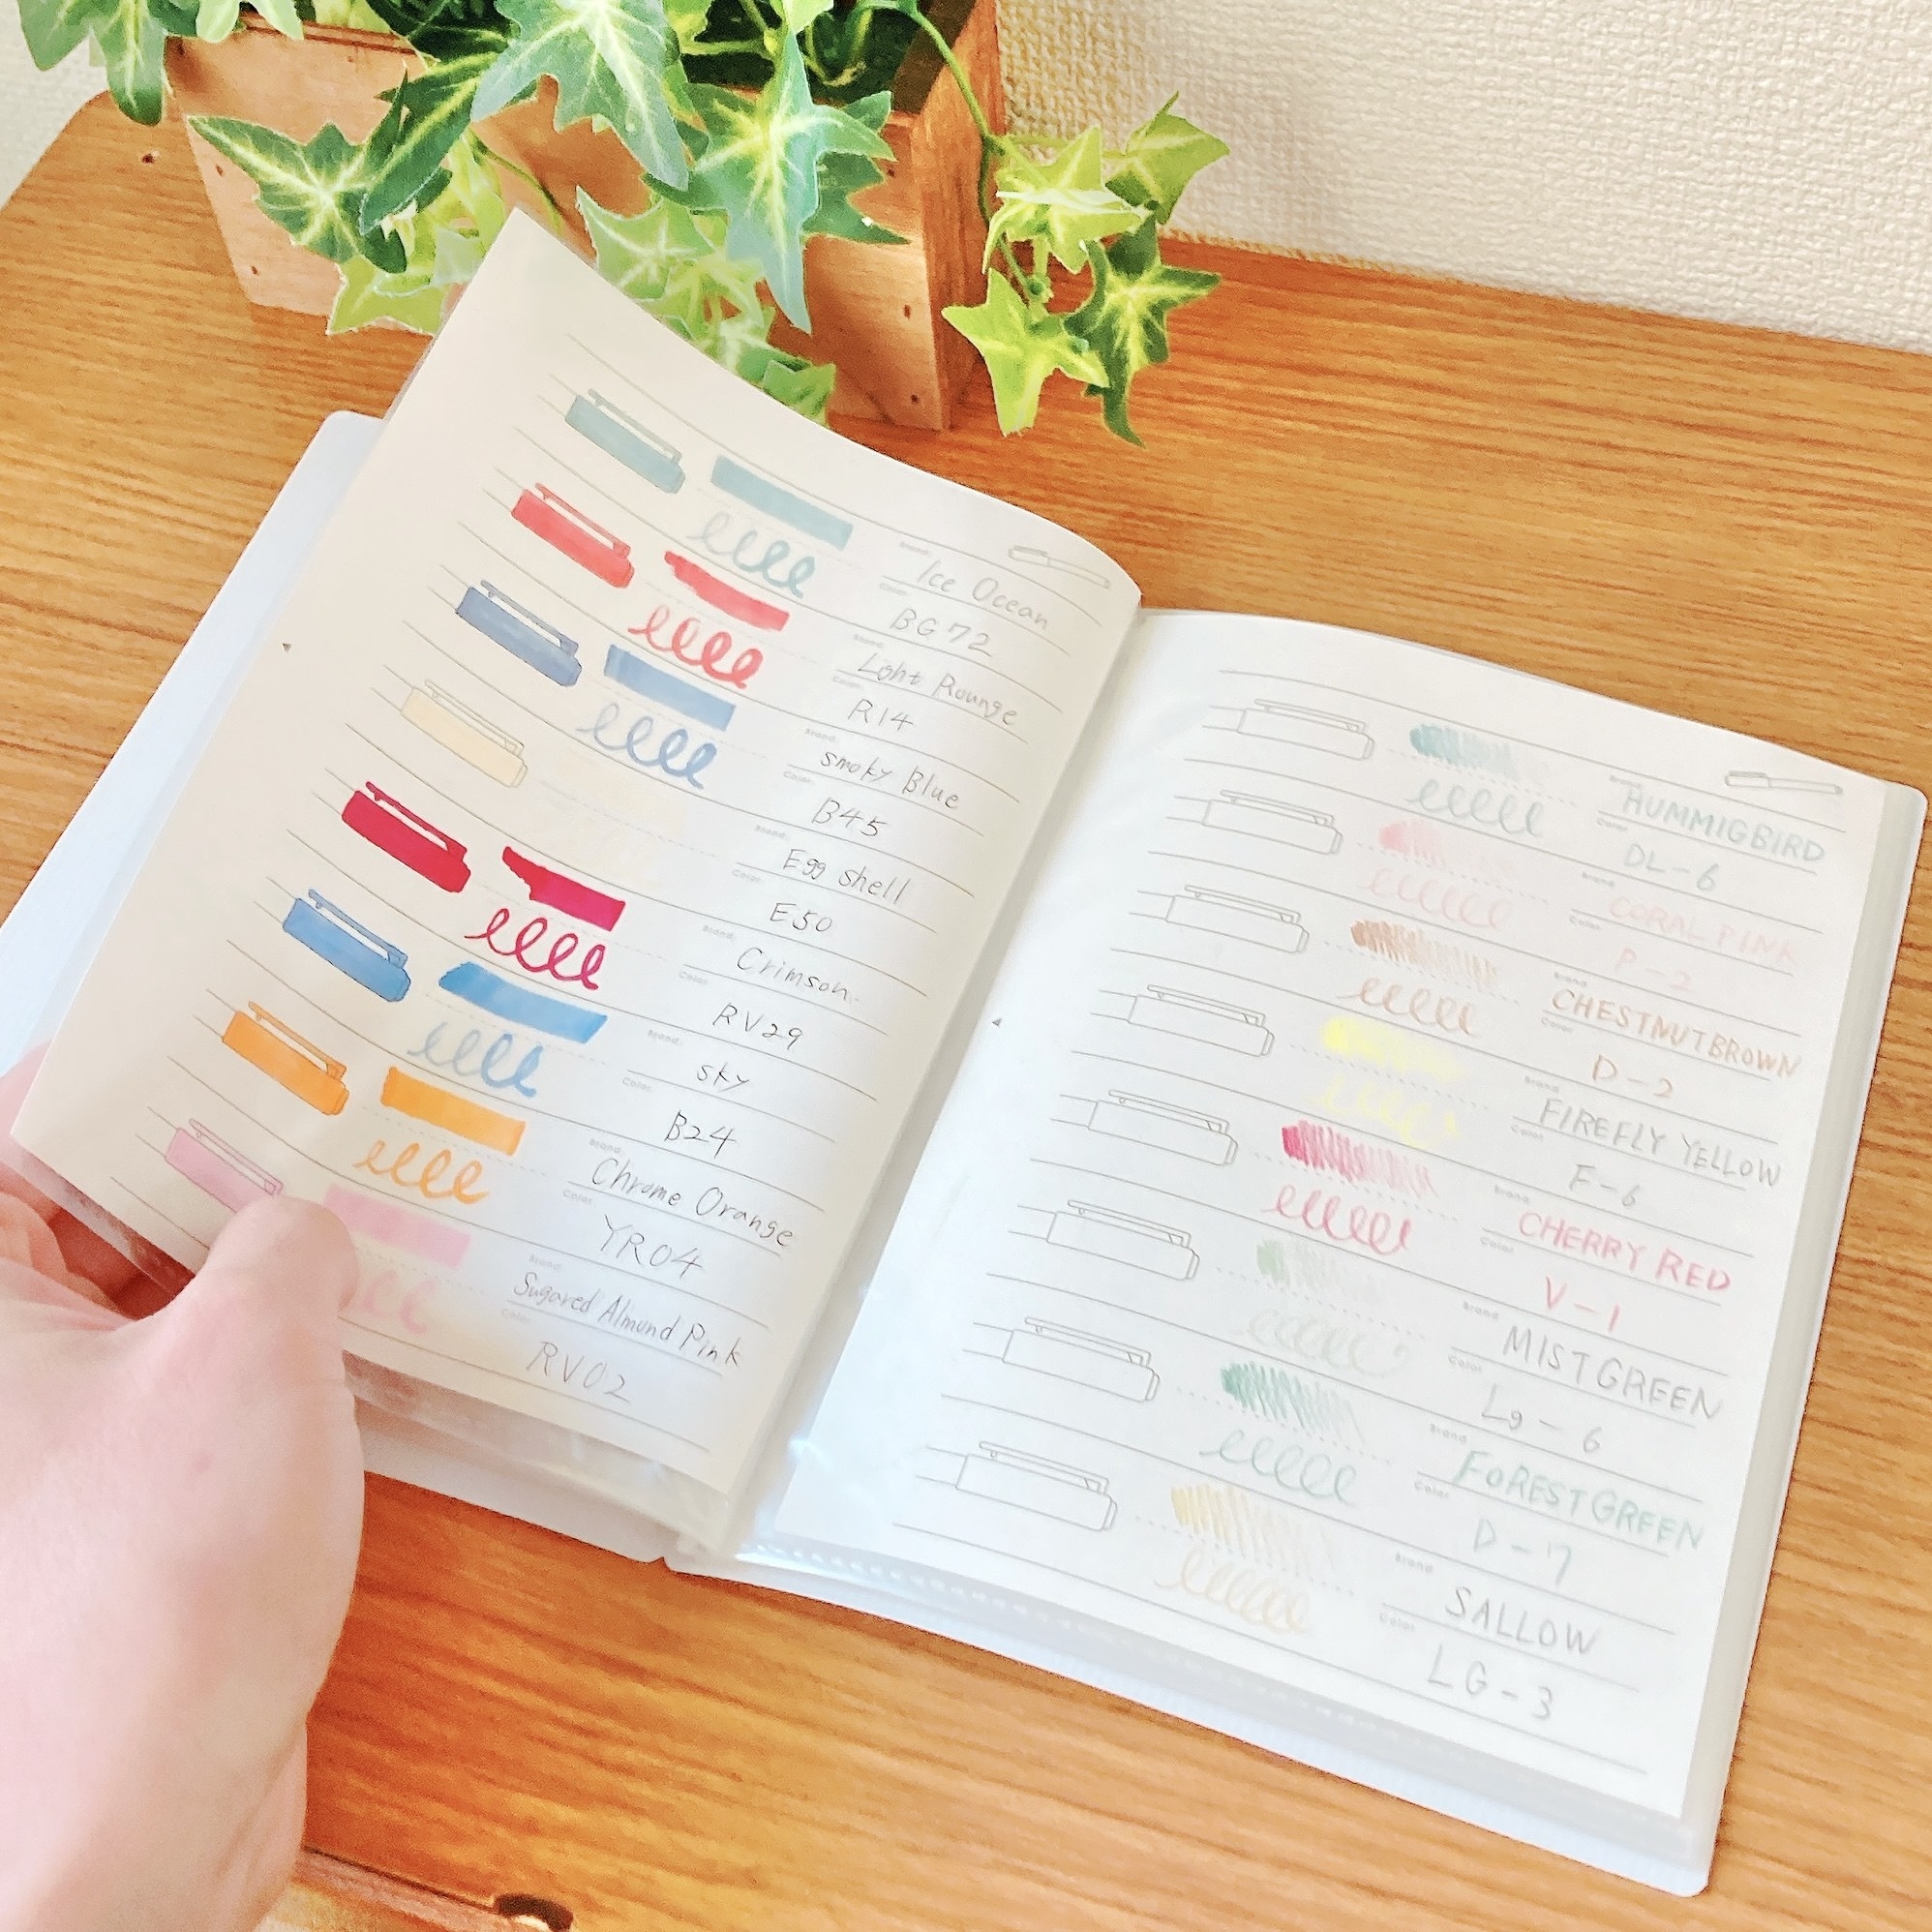 Brand:
Ice Ocean
Color:
BG 72
Brand:
Loht Rounge
Color:
R14
Brand:
smoky Blue
Color:
B45
Brand:
Egg shell
Color:
E50
Brand:
Crimson.
Color:
RV29
Brand:
sky
Color:
B24
Brand:
Chrome Orange
Color:
YR04
Brand:
Sugared Almond Pink
Color:
RV02
Brand
HUMMIGBIRD
Color
DL-6
Brand
CORAL PINK
Color
P-2
Brand
CHESTNUT BROWN
Color
D-2
Brand
FIREFLY YELLOW
Color
F-6
Brand
CHERRY RED
Color
V-1
Brand
MIST GREEN
Color
Lg-6
Brand
FoREST GREEN
Color
D-7
Brand
SALLOW
Color
LG-3